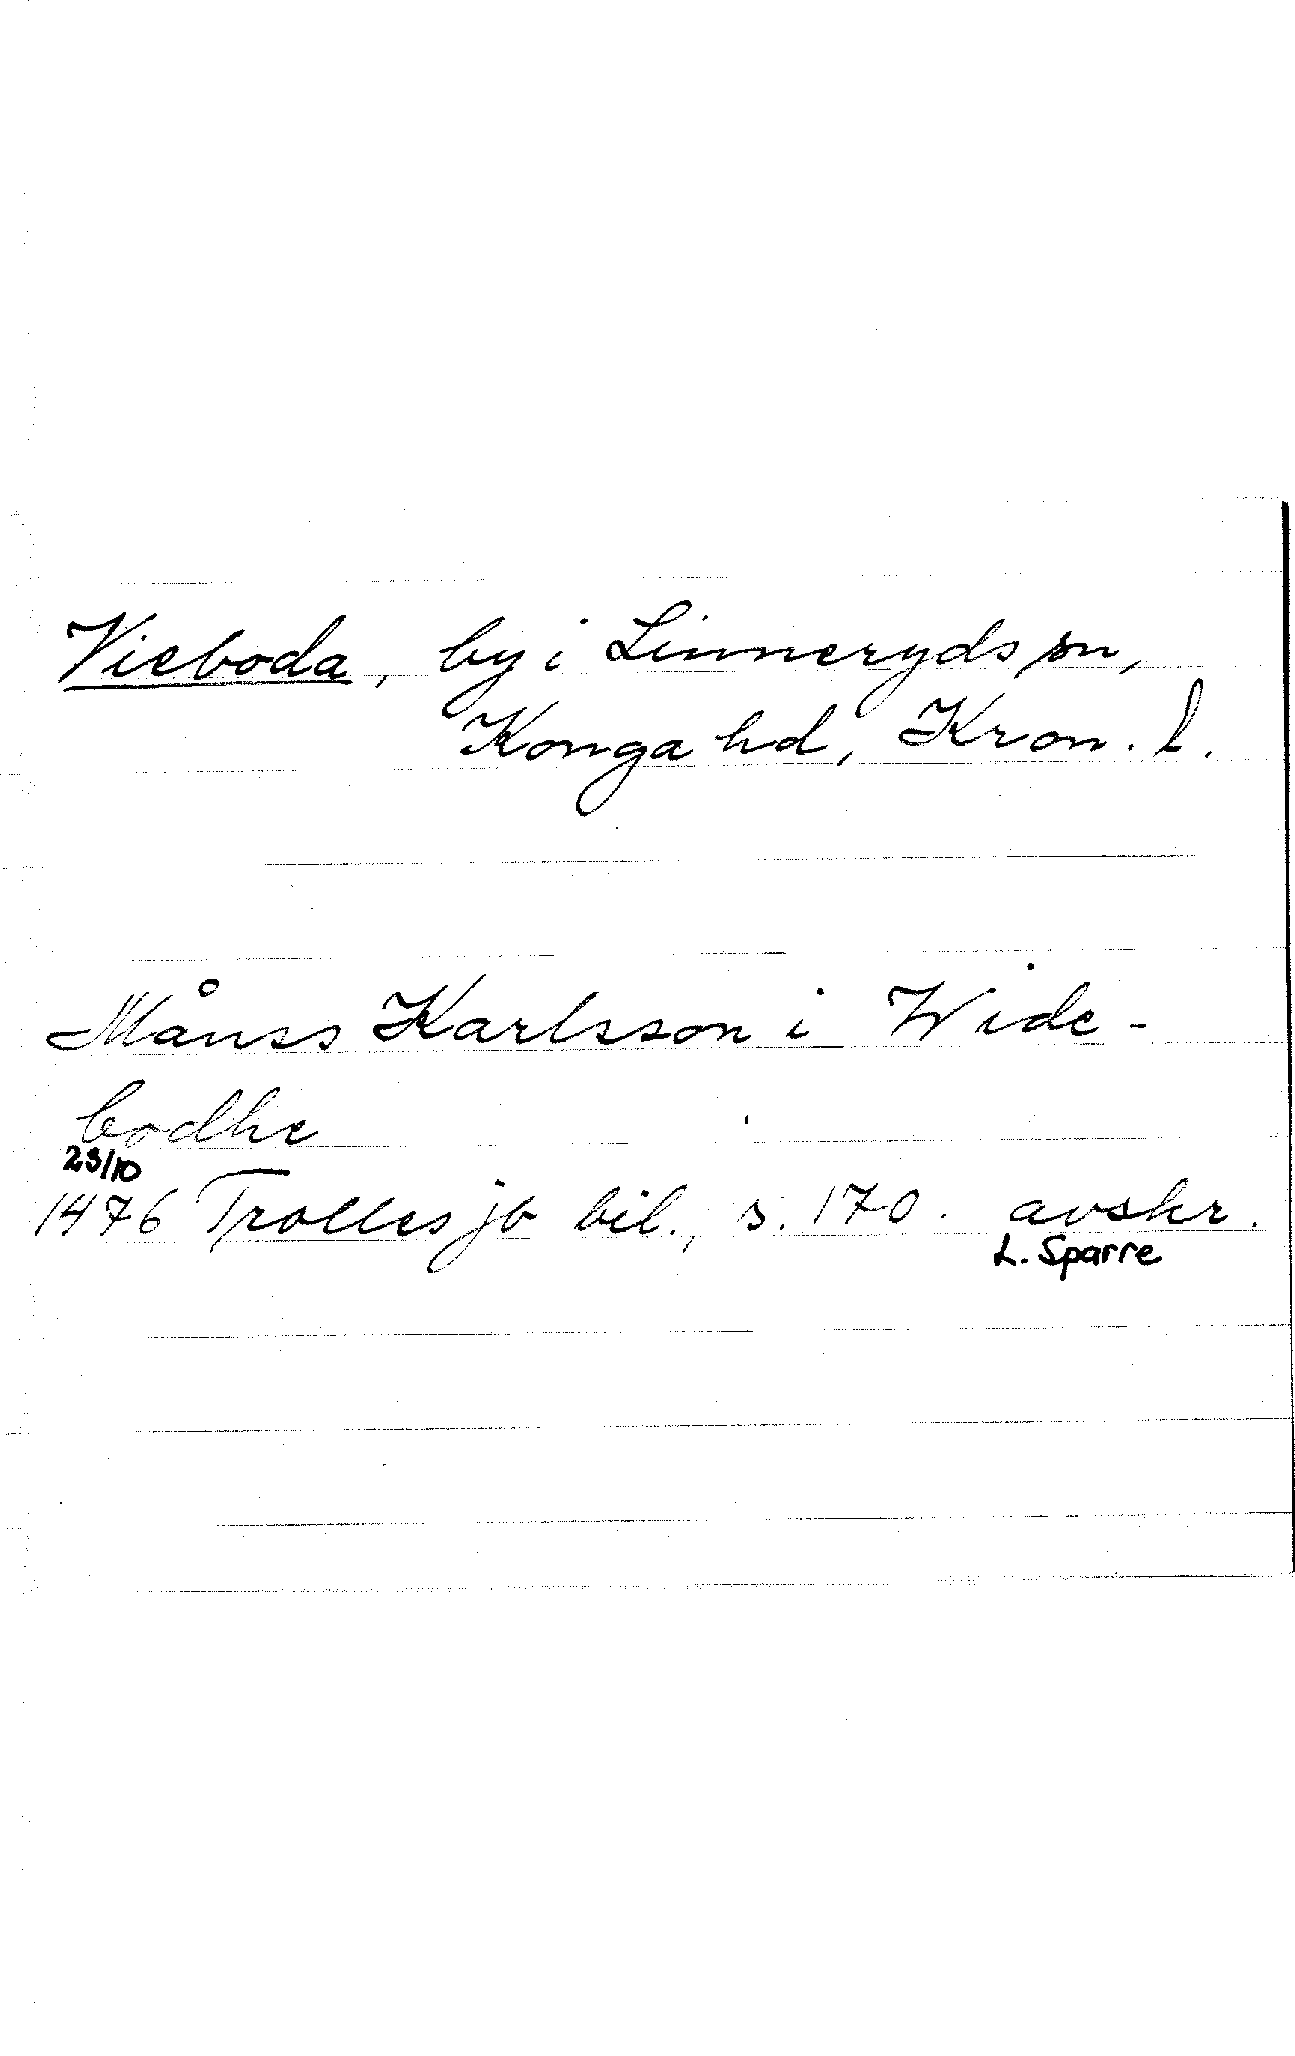 Vieboda, by i Linneryds sn,
Konga hd, Kron. l.
Månss Karlsson i Wide-
bodhe
23/10
1476 Trolles jb bil., s. 170. avskr.
L. Sparre